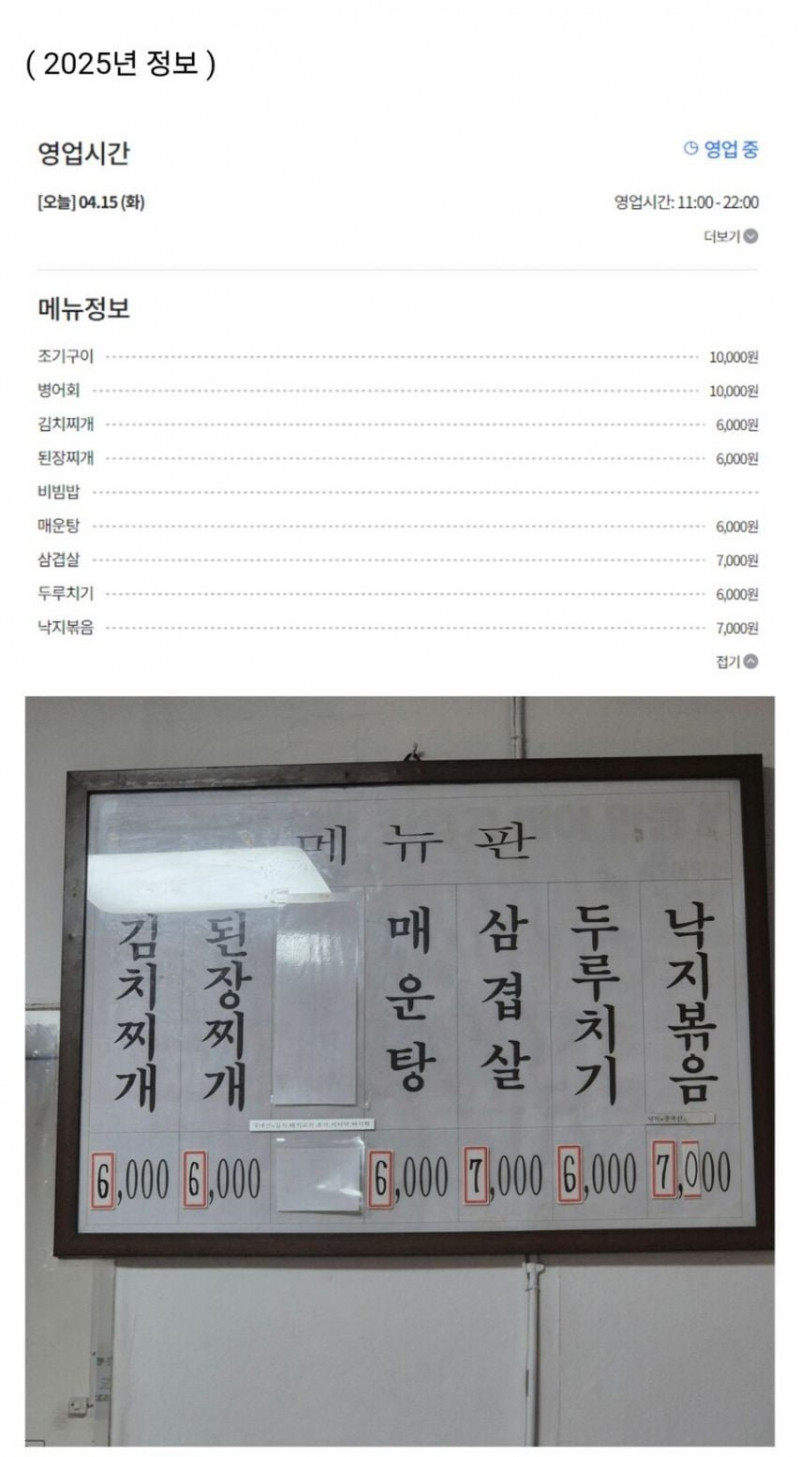 ( 2025년 정보 )
영업시간
영업 중
[오늘] 04.15 (화)
영업시간: 11:00 - 22:00
더보기
메뉴정보
조기구이 10,000원
병어회 10,000원
김치찌개 6,000원
된장찌개 6,000원
비빔밥
매운탕 6,000원
삼겹살 7,000원
두루치기 6,000원
낙지볶음 7,000원
접기
메뉴판
김치찌개 6,000
된장찌개 6,000
매운탕 6,000
삼겹살 7,000
두루치기 6,000
낙지볶음 7,000